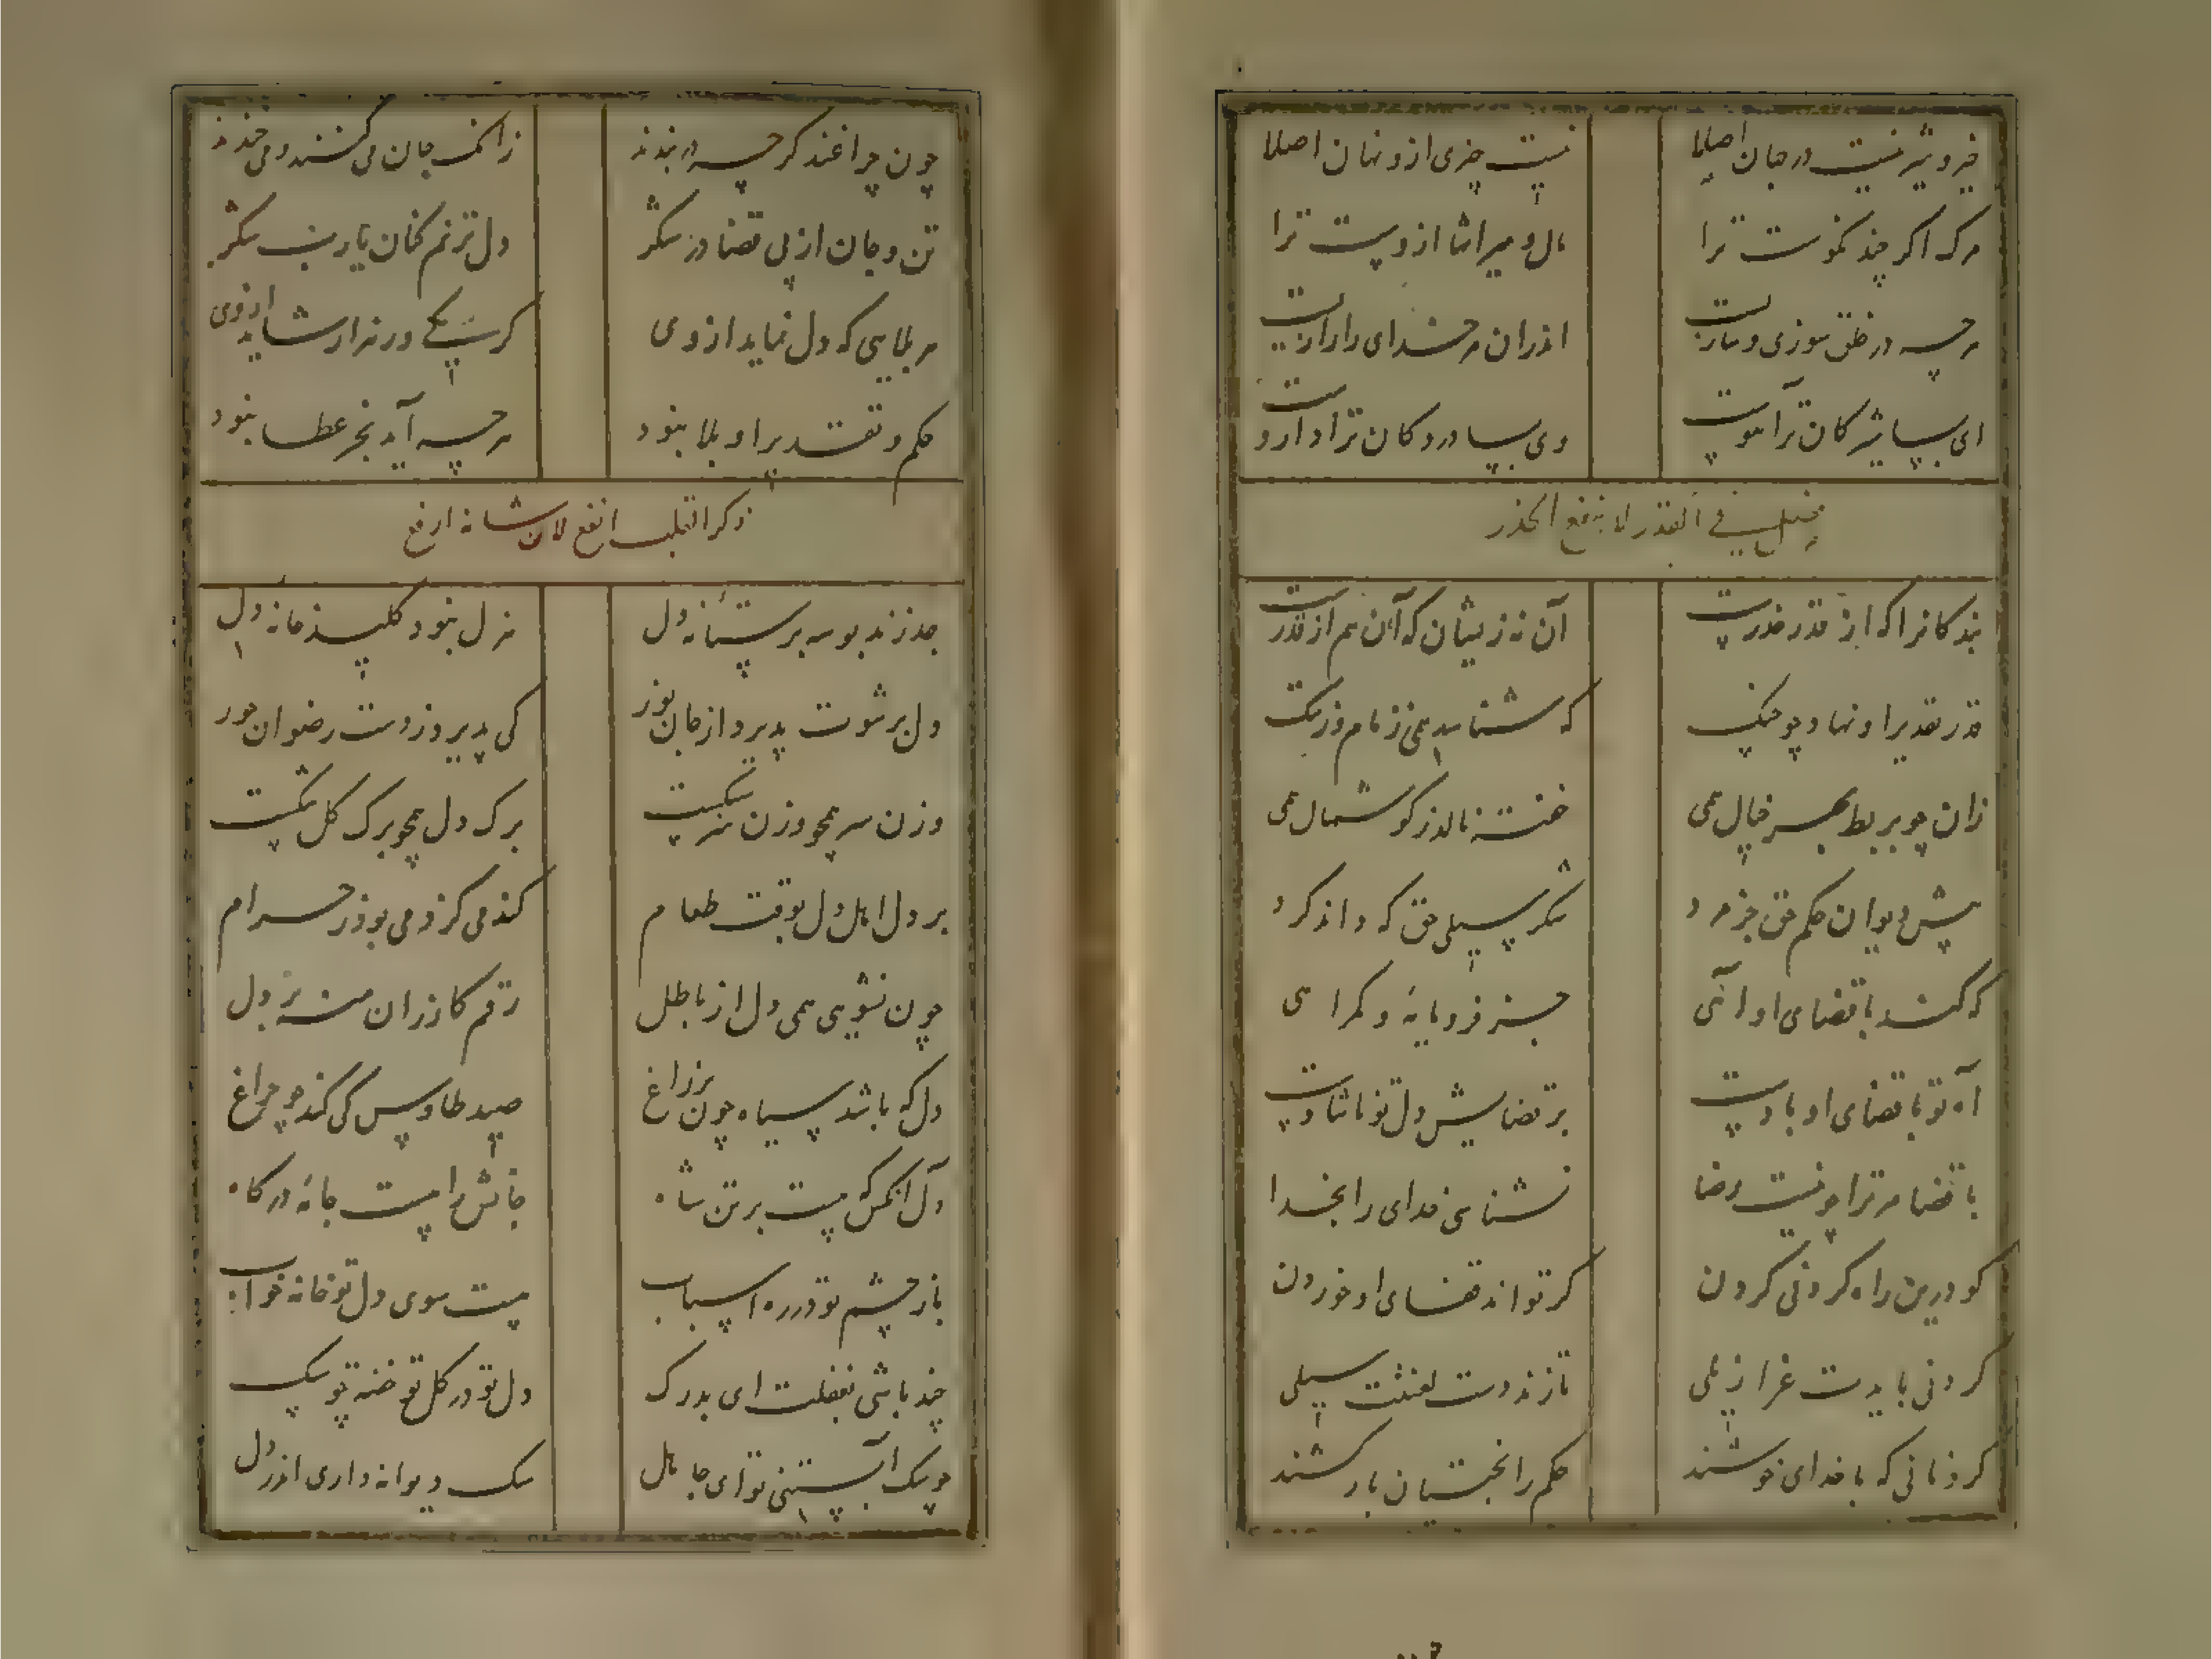 خیر و شر نیست در جهان اصلا نیست چیزی ازو نهان اصلا
مرک اکر چند نکوست ترا مال و میراثها ازوست ترا
هرچه در خلق سوزی و سازیست اندران مر خدای را رازیست
ای بسا شیر کان ترا آهوست وی بسا درد کان ترا داروست
فصل فی القدر لا ینفع الحذر
بندکانرا که از قدر حذرست آن نه زیشان که آن هم از قدرست
قدر تقدیر او نهاد چو چنک که شناسد همی ز نام و ز ننک
زان چو بربط بهر خیال همی خفته نالد ز کوشمال همی
پیش دیوان حکم حق جز مرد شکر سیلی حق که داند کرد
که کند با قضای او آهی جز فرومایه و کمراهی
آه تو با قضای او بادست بر قضایش دل تو ناشادست
با قضا مر ترا چو نیست رضا نشناسی خدای را بخدا
کو درین راه کردنی کردن کر تواند قضای او خوردن
کردنی بایدت غرا زیلی تا زند دست لعنتت سیلی
کردنانی که با خدای خوشند حکم را بختیان بارکشند
چون چراغند کرچه در بندند زانک جان می کنند و می خندند
تن و جان از پی قضا در شکر دل ترنم کنان یارب شکر
هر بلایی که دل نماید ازوی کر یکی ور هزار شاید ازوی
حکم و تقدیر او بلا نبود هرچه آید بجز عطا نبود
ذکر القلب انفع لان شانه ارفع
جد زند بوسه بر ستانه دل هزل نبود کلید خانه دل
دل بر شوت پذیرد از جان نور کی پذیرد ز دست رضوان حور
وزن سر همچو وزن سر سکیست برک دل همچو برک کل تنکیست
بر دل اهل دل بوقت طعام کندمی کز دمی بود ز حرام
چون نشویی همی دل از باطل رقم کازران منه بر دل
دل که باشد سیاه چون پر زاغ صید طاوس کی کند چو چراغ
دل آنکس که هست بر تن شاه جانش را هست جانه درکاه
باز چشم تو در ره اسباب هست سوی دل تو خانه خواب
چند باشی بغفلت ای بدرک دل تو در کل تو خفته چو سک
چو سک آبستنی تو ای جاهل سک دیوانه داری اندر دل